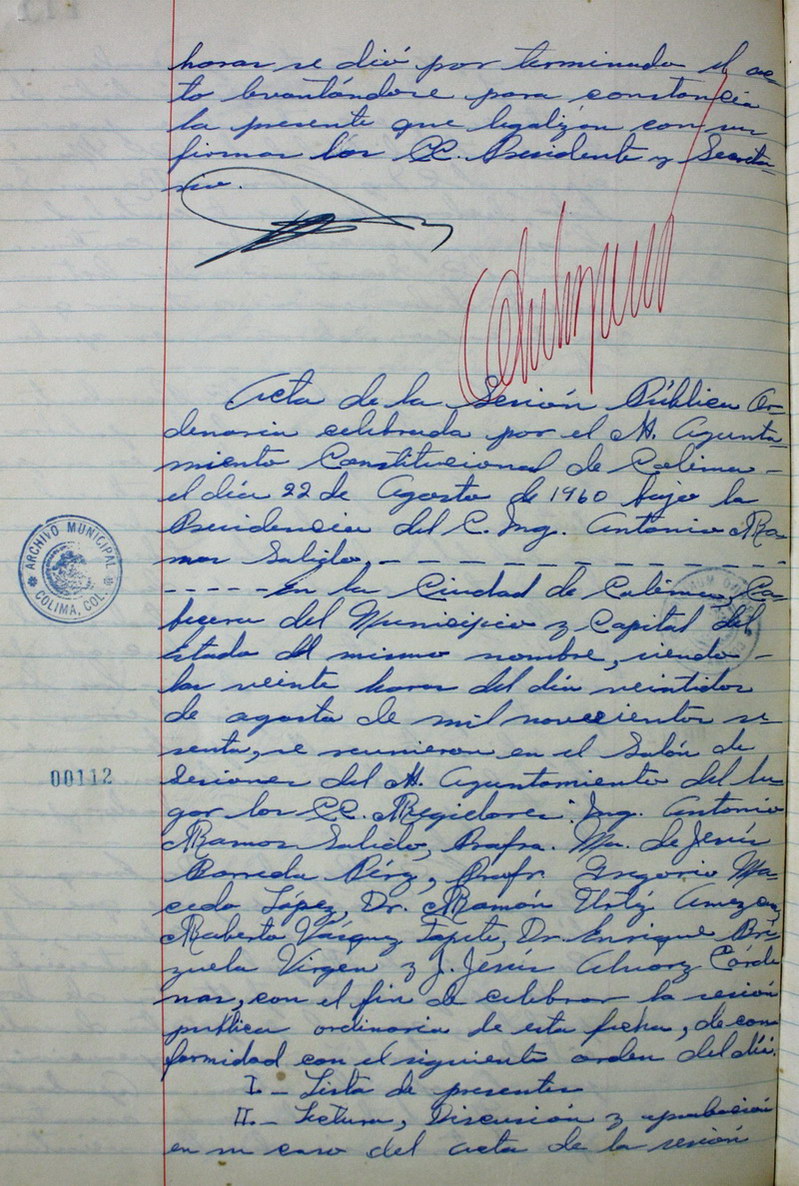 horas se dió por terminado el ac-
to levantándose para constancia
la presente que legalizan con sus
firmas los CC. Presidente y Secreta-
rio.
Acta de la Sesión Pública Or-
denaria celebrada por el H. Ayunta-
miento Constitucional de Colima -
el día 22 de Agosto de 1960 bajo la
Presidencia del C. Ing. Antonio Ra-
mos Salido, - - - - - - - - - - - - -
- - - - En la Ciudad de Colima, Ca-
becera del Municipio y Capital del
Estado del mismo nombre, siendo -
las veinte horas del día veintidos
de agosto de mil novecientos se-
senta, se reunieron en el Salón de
Sesiones del H. Ayuntamiento del lu-
gar los CC. Regidores: Ing. Antonio
Ramos Salido, Profra. Ma. de Jesús
Barreda Pérez, Profr. Gregorio Ma-
cedo López, Dr. Ramón
Roberto Vásquez Tapete, Dr. Enrique Bri-
zuela Virgen y J. Jesús Alvarez Cárde
nas, con el fin de celebrar la sesión
publica ordinaria de esta fecha, de con
formidad con el siguiente orden del día.
I.- Lista de presentes
II.- Lectura, Discusión y aprobación
en su caso del acta de la sesión
ARCHIVO MUNICIPAL
COLIMA, COL.
00112